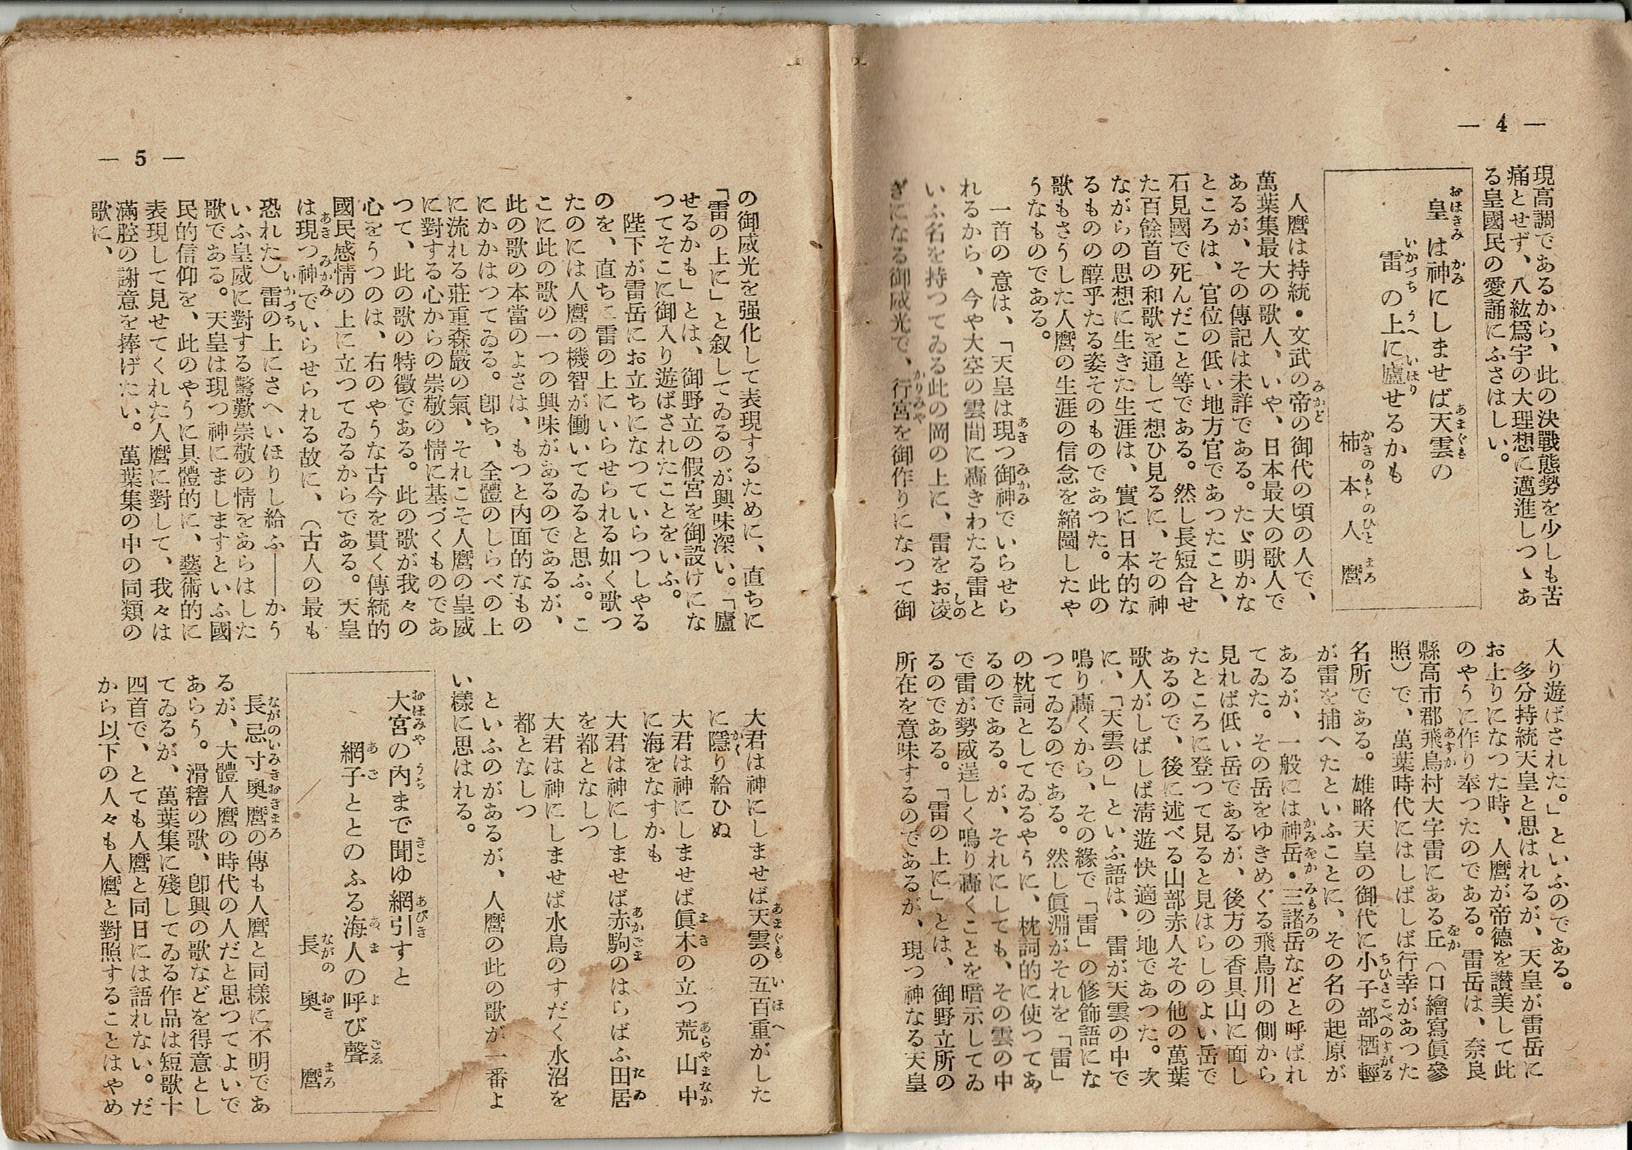 — 4 —
現高調であるから、此の決戰態勢を少しも苦
痛とせず、八紘爲宇の大理想に邁進しつゝあ
る皇國民の愛誦にふさはしい。
皇は神にしませば天雲の
雷の上に廬せるかも
柿本人麿
人麿は持統・文武の帝の御代の頃の人で、
萬葉集最大の歌人、いや、日本最大の歌人で
あるが、その傳記は未詳である。たゞ明かな
ところは、官位の低い地方官であつたこと、
石見國で死んだこと等である。然し長短合せ
た百餘首の和歌を通して想ひ見るに、その神
ながらの思想に生きた生涯は、實に日本的な
るものの醇乎たる姿そのものであつた。此の
歌もさうした人麿の生涯の信念を縮圖したや
うなものである。
一首の意は、「天皇は現つ御神でいらせら
れるから、今や大空の雲間に轟きわたる雷と
いふ名を持つてゐる此の岡の上に、雷をお凌
ぎになる御威光で、行宮を御作りになつて御
入り遊ばされた。」といふのである。
多分持統天皇と思はれるが、天皇が雷岳に
お上りになつた時、人麿が帝德を讃美して此
のやうに作り奉つたのである。雷岳は、奈良
縣高市郡飛鳥村大字雷にある丘（口繪寫眞參
照）で、萬葉時代にはしばしば行幸があつた
名所である。雄略天皇の御代に小子部栖輕
が雷を捕へたといふことに、その名の起原が
あるが、一般には神岳・三諸岳などと呼ばれ
てゐた。その岳をゆきめぐる飛鳥川の側から
見れば低い岳であるが、後方の香具山に面し
たところに登つて見ると見はらしのよい岳で
あるので、後に述べる山部赤人その他の萬葉
歌人がしばしば淸遊快適の地であつた。次
に、「天雲の」といふ語は、雷が天雲の中で
鳴り轟くから、その緣で「雷」の修飾語にな
つてゐるのである。然し眞淵がそれを「雷」
の枕詞としてゐるやうに、枕詞的に使つてあ
るのである。が、それにしても、その雲の中
で雷が勢威逞しく鳴り轟くことを暗示してゐ
るのである。「雷の上に」とは、御野立所の
所在を意味するのであるが、現つ神なる天皇
— 5 —
の御威光を强化して表現するために、直ちに
「雷の上に」と叙してゐるのが興味深い。「廬
せるかも」とは、御野立の假宮を御設けにな
つてそこに御入り遊ばされたことをいふ。
陛下が雷岳にお立ちになつていらつしやる
のを、直ちに雷の上にいらせられる如く歌つ
たのには人麿の機智が働いてゐると思ふ。こ
こに此の歌の一つの興味があるのであるが、
此の歌の本當のよさは、もつと内面的なもの
にかかはつてゐる。卽ち、全體のしらべの上
に流れる莊重森嚴の氣、それこそ人麿の皇威
に對する心からの崇敬の情に基づくものであ
つて、此の歌の特徵である。此の歌が我々の
心をうつのは、右のやうな古今を貫く傳統的
國民感情の上に立つてゐるからである。天皇
は現つ神でいらせられる故に、（古人の最も
恐れた）雷の上にさへいほりし給ふ——かう
いふ皇威に對する驚歎崇敬の情をあらはした
歌である。天皇は現つ神にましますといふ國
民的信仰を、此のやうに具體的に、藝術的に
表現して見せてくれた人麿に對して、我々は
滿腔の謝意を捧げたい。萬葉集の中の同類の
歌に、
大君は神にしませば天雲の五百重がした
に隱り給ひぬ
大君は神にしませば眞木の立つ荒山中
に海をなすかも
大君は神にしませば赤駒のはらばふ田居
を都となしつ
大君は神にしませば水鳥のすだく水沼を
都となしつ
といふのがあるが、人麿の此の歌が一番よ
い樣に思はれる。
大宮の內まで聞ゆ網引すと
網子ととのふる海人の呼び聲
長奧麿
長忌寸奧麿の傳も人麿と同樣に不明であ
るが、大體人麿の時代の人だと思つてよいで
あらう。滑稽の歌、卽興の歌などを得意とし
てゐるが、萬葉集に殘してゐる作品は短歌十
四首で、とても人麿と同日には語れない。だ
から以下の人々も人麿と對照することはやめ